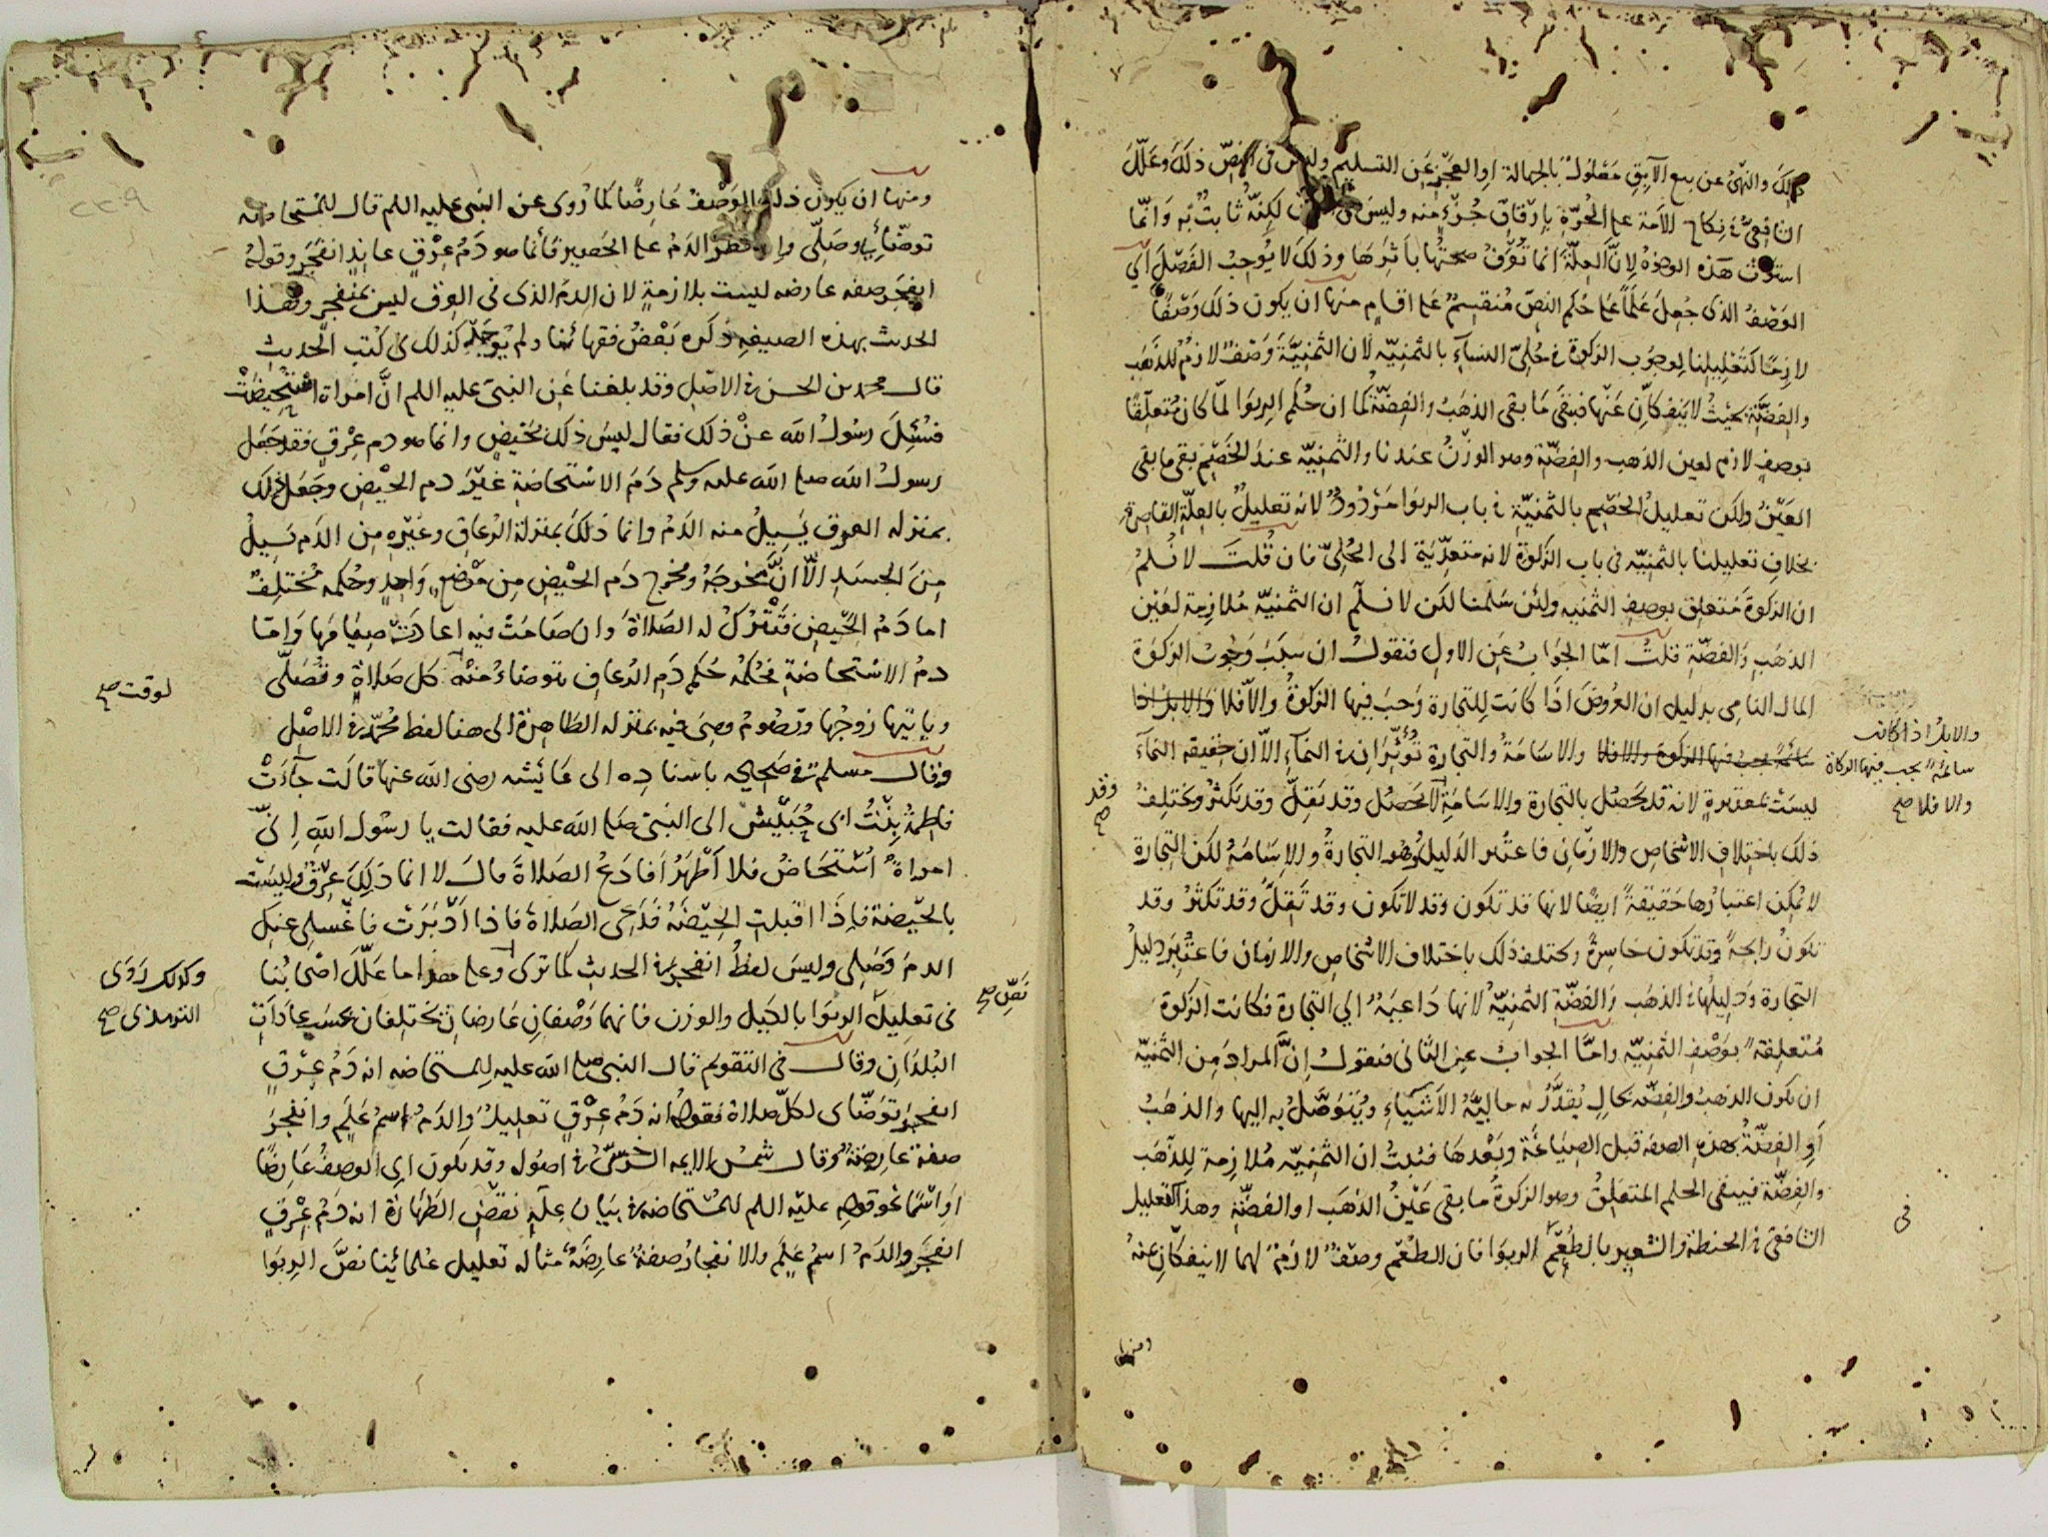 ذلك والنهى عن بيع الآبق معلول بالجهالة او العجز عن التسليم وليس فى النص ذلك وعلل
الشافعى فى نكاح الامة على الحرة بارقاق جزء منه وليس فى النص لكنه ثابت به وانما
استوت هذه الوجوه لان العلة انما تعرف صحتها باثرها وذلك لا يوجب الفصل اى
الوصف الذى جعل علما على حكم النص منقسم على اقسام منها ان يكون ذلك وصفا
لازما كتعليلنا لوجوب الزكوة فى حلى النساء بالثمنيه لان الثمنية وصف لازم للذهب
والفضة بحيث لا ينفكان عنها فتبقى ما بقى الذهب والفضة كما ان حكم الربوا لما كان متعلقا
بوصف لازم لعين الذهب والفضة وهو الوزن عندنا والثمنيه عند الخصم بقى ما بقى
العين ولكن تعليل الخصم بالثمنية فى باب الربوا مردود لانه تعليل بالعلة القاصرة
بخلاف تعليلنا بالثمنيه فى باب الزكوة لانه متعدية الى الحلى فان قلت لا نسلم
ان الزكوة متعلق بوصف الثمنيه ولئن سلمنا لكن لا نسلم ان الثمنية ملازمة لعين
الذهب والفضة قلت اما الجواب عن الاول فنقول ان سبب وجوب الزكوة
المال النامى بدليل ان العروض اذا كانت للتجارة وجب فيها الزكوة والا فلا والابل اذا
سائمة يجب فيها الزكوة والا فلا والاسامة والتجارة تؤثران فى النماء الا ان حقيقه النماء
والابل اذا كانت
سائمة يجب فيها الزكاة
والا فلا صح
ليست بمعتبرة لانه قد يحصل بالتجارة والاسامة لا يحصل وقد يقل وقد يكثر ويختلف
وقد
صح
ذلك باختلاف الاشخاص والازمان فاعتبر الدليل وهو التجارة والاسامة لكن التجارة
لا يمكن اعتبارها حقيقة ايضا لانها قد تكون وقد لا تكون وقد تقل وقد تكثر وقد
تكون رابحة وقد تكون خاسرة ويختلف ذلك باختلاف الاشخاص والازمان فاعتبر دليل
التجارة ودليلها فى الذهب والفضة الثمنية لانها داعية الى التجارة فكانت الزكوة
متعلقة بوصف الثمنيه واما الجواب عن الثانى فنقول ان المراد من الثمنية
ان يكون الذهب والفضه بحال يقدر به مالية الاشياء ويتوصل به اليها والذهب
او الفضة بهذه الصفه قبل الصياغة وبعدها فثبت ان الثمنيه ملازمة للذهب
والفضة فيبقى الحكم المتعلق وهو الزكوة ما بقى عين الذهب او الفضة وهذا كتعليل
فى
الشافعى فى الحنطة والشعير بالطعم الربوا فان الطعم وصف لازم لهما لا ينفكان عنه
ومنها
ومنها ان يكون ذلك الوصف عارضا كما روى عن النبى عليه اللم قال للمستحاضه
توضائى وصلى وان قطر الدم على الحصير فانما هو دم عرق عاند انفجر وقوله
انفجر صفه عارضه ليست بلازمة لان الدم الذى فى العرق ليس بمنفجر وهذا
الحديث بهذه الصيغه ذكره بعض فقهائنا ولم يوجد كذلك فى كتب الحديث
قال محمد بن الحسن فى الاصل وقد بلغنا عن النبى عليه اللم ان امراة استحيضت
فسئل رسول الله عن ذلك فقال ليس ذلك بحيض وانما هو دم عرق فقد جعل
رسول الله صلى الله عليه وسلم دم الاستحاضة غير دم الحيض وجعل ذلك
بمنزله العرق يسيل منه الدم وانما ذلك بمنزلة الرعاف وغيره من الدم يسيل
من الجسد الا ان مخرجه ومخرج دم الحيض من موضع واحد وحكمه مختلف
اما دم الحيض فتترك له الصلاة وان صامت فيه اعادت صيامها واما
دم الاستحاضة فحكمه حكم دم الرعاف توضاء منه كل صلاة وتصلى
لوقت صح
وياتيها زوجها وتصوم وهى فيه بمنزله الطاهرة الى هنا لفظ محمد فى الاصل
وقال مسلم فى صحيحه باسناده الى عائشه رضى الله عنها قالت جاءت
فاطمة بنت ابى حبيش الى النبى صلى الله عليه فقالت يا رسول الله انى
امراة استحاض فلا اطهر افادع الصلاة قال لا انما ذلك عرق وليست
بالحيضة فاذا اقبلت الحيضه فدعى الصلاة فاذا ادبرت فاغسلى عنك
الدم وصلى وليس لفظ انفجر فى الحديث كما ترى وعلى هذا ما علل اصحابنا
وكذلك روى
الترمذى صح
نص صح
فى تعليل الربوا بالكيل والوزن فانهما وصفان عارضان يختلفان بحسب عادات
البلدان وقال فى التقويم قال النبى صلى الله عليه للمستحاضه انه دم عرق
انفجر توضاى لكل صلاة فقوله انه دم عرق تعليل والدم اسم علم وانفجر
صفة عارضة وقال شمس الايمه السرخسى فى اصوله وقد يكون اى الوصف عارضا
او اسما نحو قوله عليه اللم للمستحاضه فى بيان علة نقض الطهارة انه دم عرق
انفجر والدم اسم علم والانفجار صفة عارضة مثاله تعليل علمائنا نص الربوا